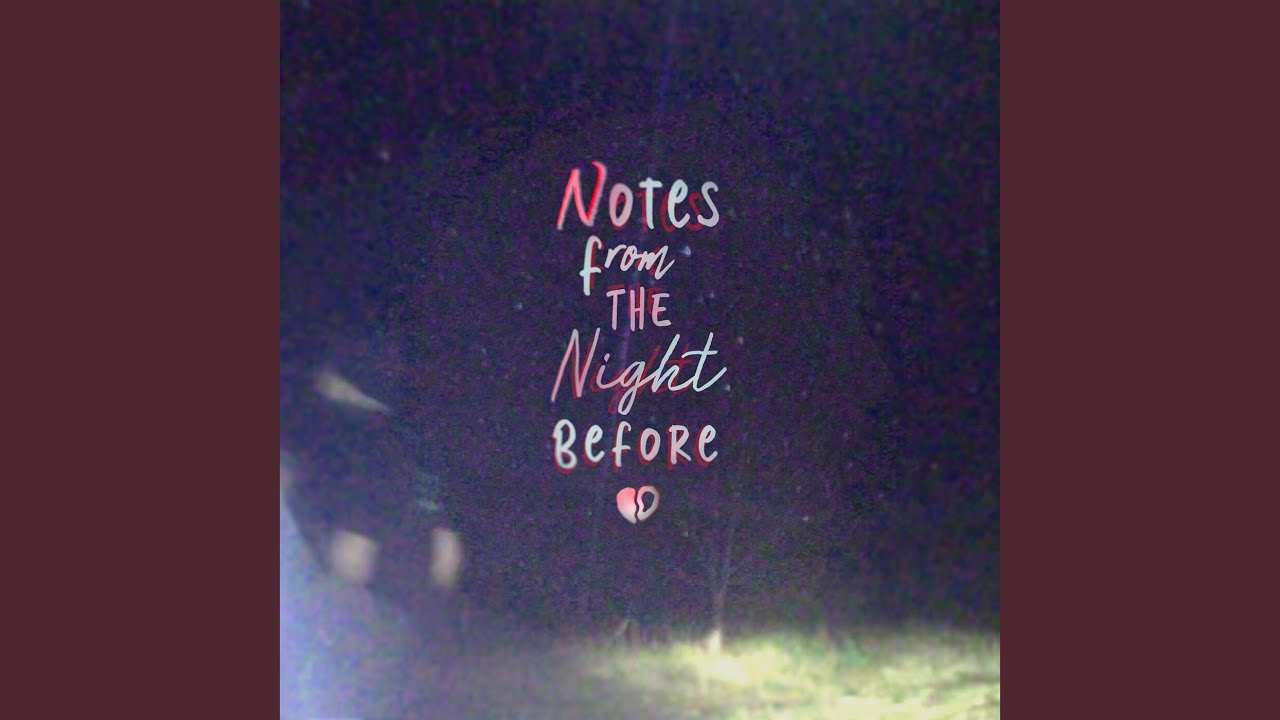 Notes
from
THE
Night
BefoRe